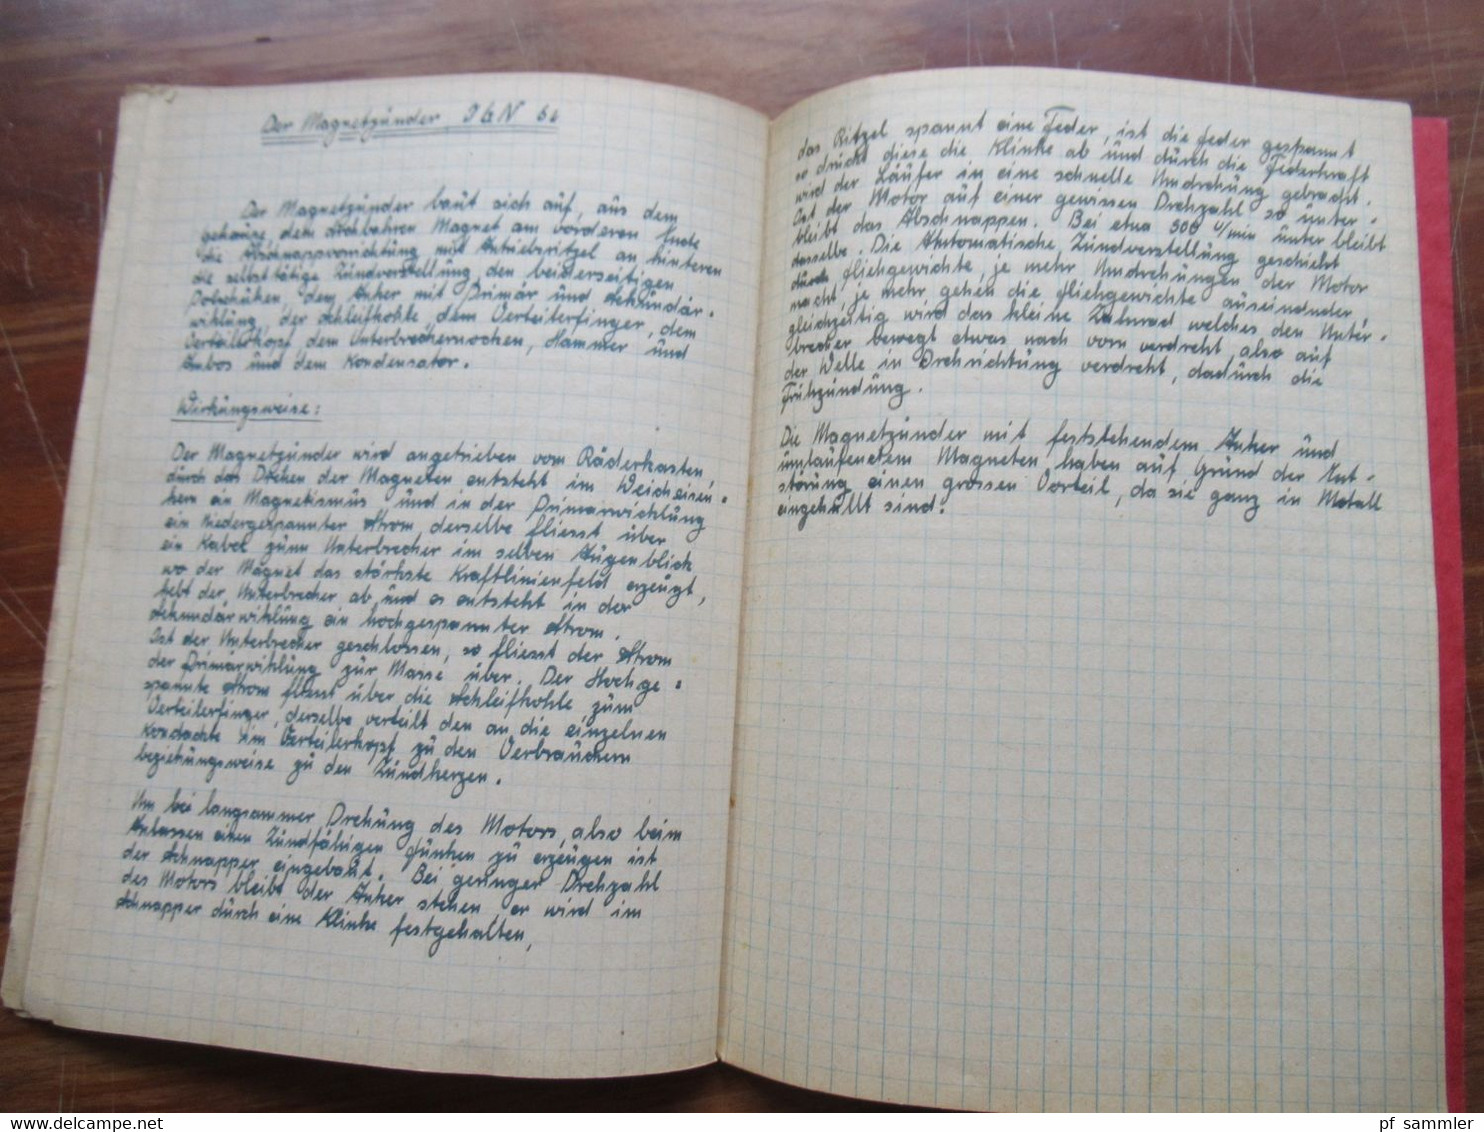 Der Magnetzünder JGN 6a
Der Magnetzünder baut sich auf, aus dem
gehäuse, dem drehbahren Magnet am vorderen Ende
die Abschnappvorrichtung mit Antriebsritzel an hinteren
die selbsttätige Zündverstellung den beiderseitigen
Polschuhen, dem Anker mit Primär und Sekundär-
wiklung, der Schleifkohle dem Verteilerfinger, dem
Verteilerkopf dem Unterbrechernocken, Hammer und
Ambos und dem Kondensator.
Wirkungsweise:
Der Magnetzünder wird angetrieben vom Räderkasten,
durch das Drehen der Magneten entsteht im Weicheisen-
kern ein Magnetismus und in der Primärwicklung
ein Niedergespannter Strom derselbe fliesst über
ein Kabel zum Unterbrecher im selben Augenblick
wo der Magnet das stärkste Kraftlinienfeld erzeugt,
hebt der Unterbrecher ab und es entsteht in der
Sekundärwiklung ein hochgespannter Strom.
Ist der Unterbrecher geschlossen, so fliesst der Strom
der Primärwiklung zur Masse über. Der Hochge-
spannte Strom fliesst über die Schleifkohle zum
Verteilerfinger, derselbe verteilt den an die einzelnen
Kondackte im Verteilerkopf zu den Verbrauchern
beziehungsweise zu den Zündkerzen.
Um bei langsammer Drehung des Motors, also beim
Anlassen einen Zündfähigen Funken zu erzeugen ist
der Schnapper eingebaut. Bei geringer Drehzahl
des Motors bleibt der Anker stehen er wird im
Schnapper durch eine Klinke festgehalten,
das Ritzel spannt eine Feder, ist die Feder gespannt
so drückt diese die Klinke ab und durch die Federkraft
wird der Läufer in eine schnelle Umdrehung gebracht.
Ist der Motor auf einer gewissen Drehzahl so unter-
bleibt das Abschnappen. Bei etwa 300 U/min unterbleibt
dasselbe. Die Automatische Zündverstellung geschieht
durch fliehgewichte, je mehr Umdrehungen der Motor
macht, je mehr gehen die fliehgewichte auseinander,
gleichzeitig wird das kleine Zahnrad welches den Unter-
brecher bewegt etwas nach vorn verdreht, also auf
der Welle in Drehrichtung verdreht, dadurch die
Frühzündung.
Die Magnetzünder mit feststehendem Anker und
umlaufendem Magneten haben auf Grund der Ent-
störung einen grossen Vorteil, da sie ganz in Metall
eingehüllt sind!
www.delcampe.net
pf_sammler